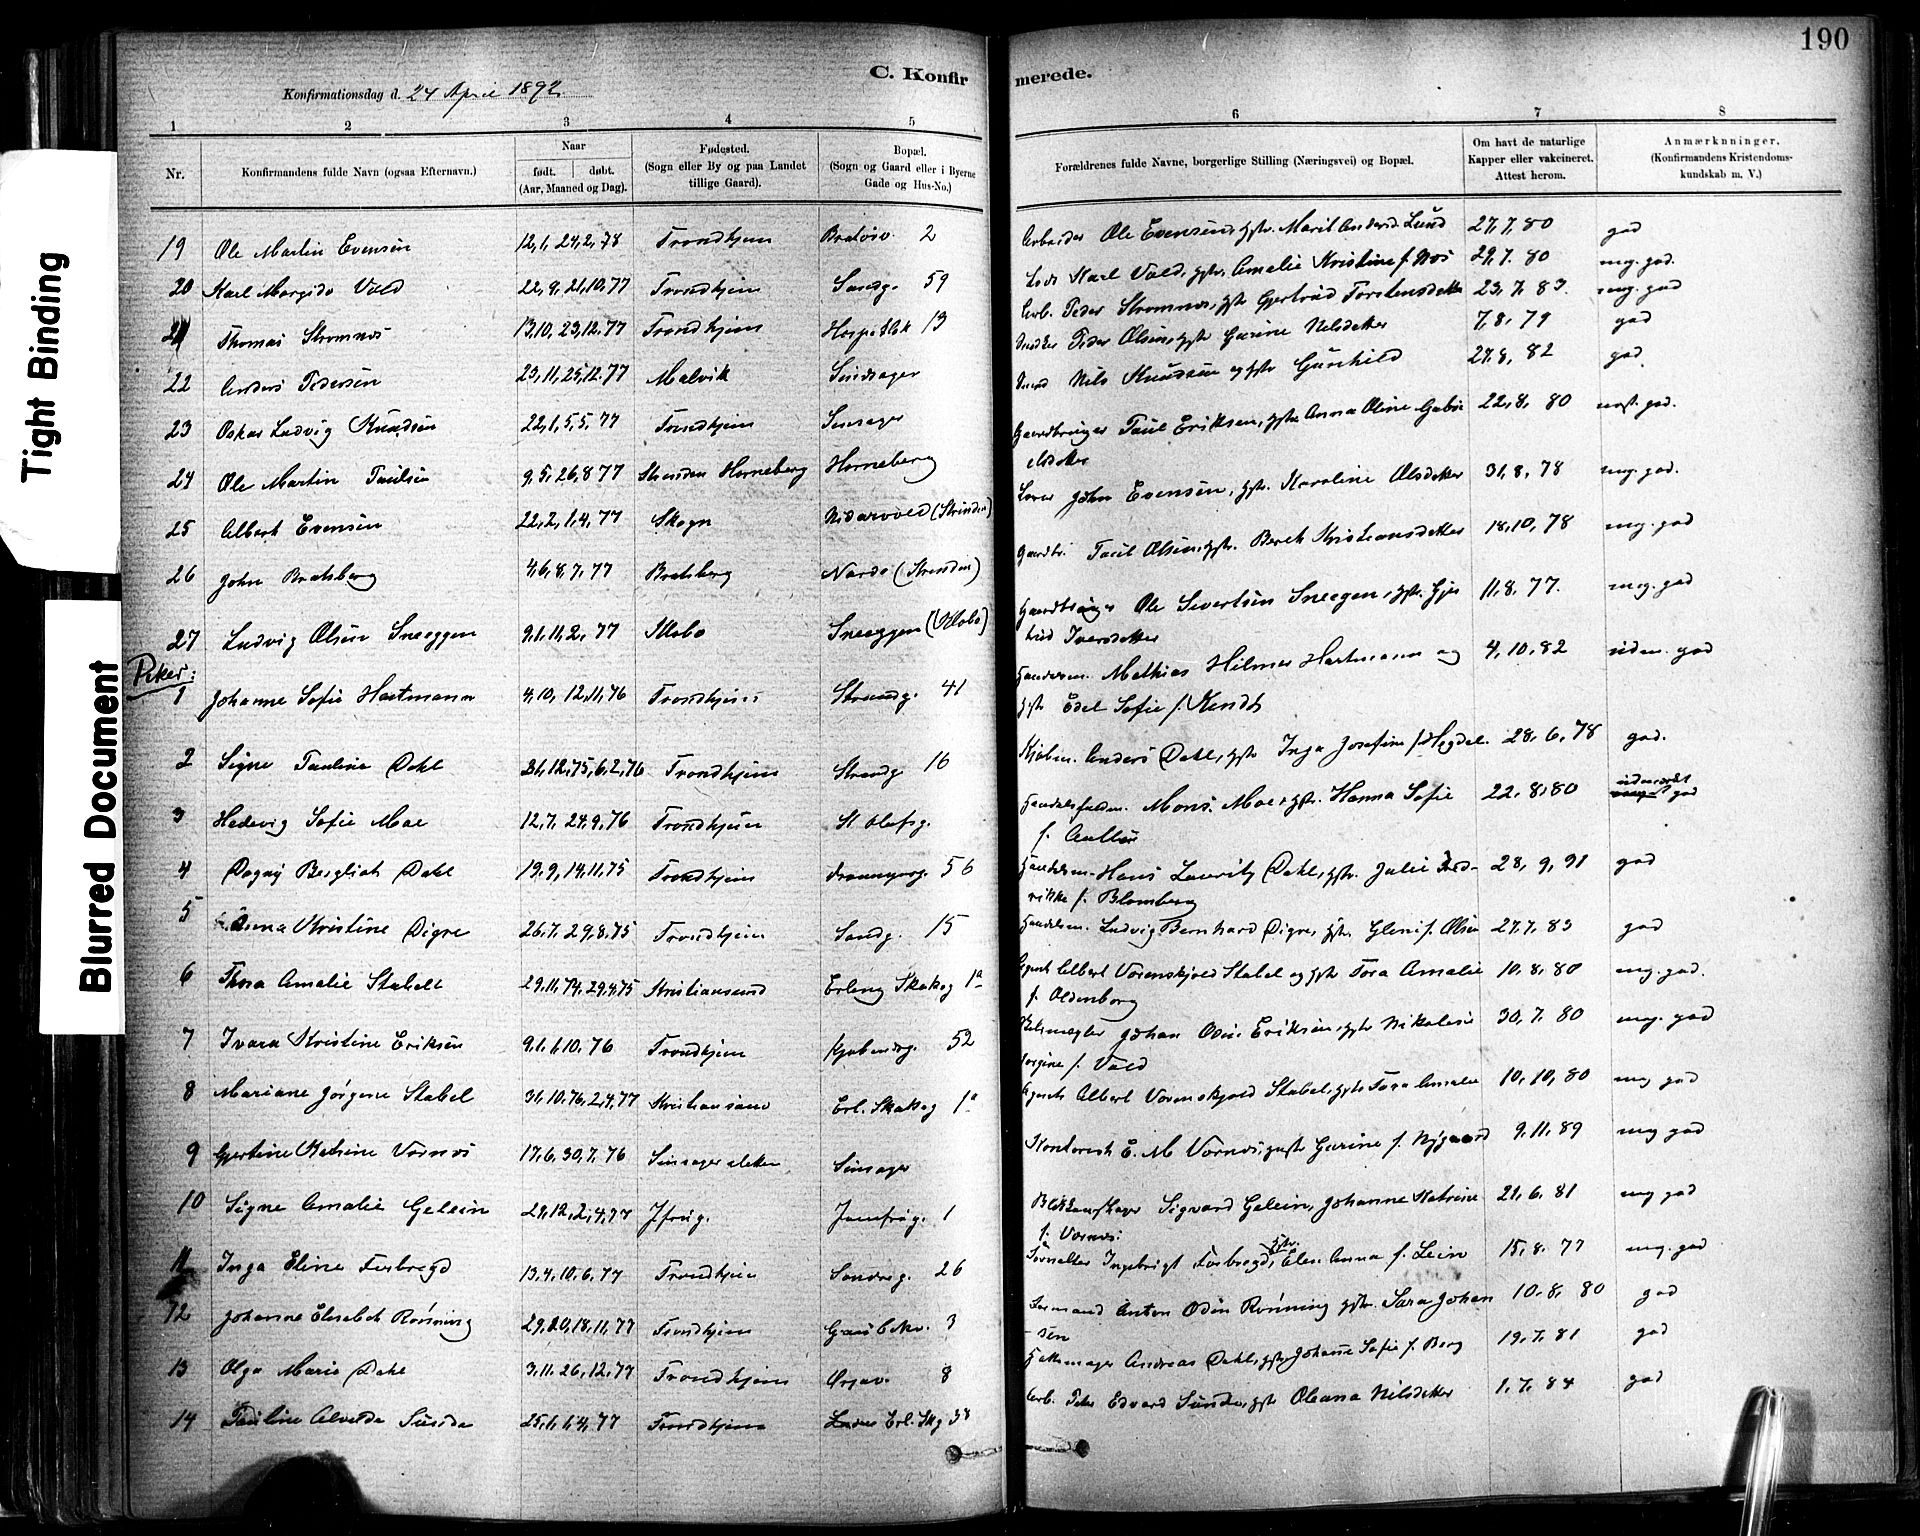 190
C. Konfirmerede.
Konfirmationsdag d. 24 April 1892
1 2 3 4 5 6 7 8
Nr.
Konfirmandens fulde Navn (ogsaa Efternavn.)
Naar
født. døbt.
(Aar, Maaned og Dag).
Fødested.
(Sogn eller By og paa Landet
tillige Gaard).
Bopæl.
(Sogn og Gaard eller i Byerne
Gade og Hus-No.)
Forældrenes fulde Navne, borgerlige Stilling (Næringsvei) og Bopæl.
Om havt de naturlige
Kopper eller vakcineret.
Attest herom.
Anmærkninger.
(Konfirmandens Kristendoms-
kundskab m. V.)
19 Ole Martin Evensen 12,1, 24,2, 78 Trondhjem 2 Arbeider Ole Evensen, gstr. Marit Andersd. Lund 27,7, 80 god
20 Karl 22,9, 21,10, 77 Trondhjem Sandg. 59 Karl Vold, gstr. Amalie Kristine f. 29,7. 80 mg. god.
21 Thomas Strømnes 13,10, 23,12, 77 Trondhjem 13 Arb. Peder Strømnes, gstr Gjertrud Torstensdatter 23,7, 83. mg. god
22 Anders Pedersen 23,11, 25,12. 77 Malvik Sindsager Peder Olsen, gstr Gurine Nilsdatter 7,8, 79 god
23 Oskar Ludvig Knudsen 22,1, 5,5, 77 Trondhjem Sinsager Nils Knudsen og gstr Gunhild 27,8, 82 god.
24 Ole Martin Paulsen 9,5, 26,8 77 Strinden Horneberg Horneberg Gaardbruger Paul Eriksen, gstr Anna Oline Gabri
elsdatter 22,8, 80 god.
25 Albert Evensen 22,2, 1,4, 77 Skogn Nidarvold (Strinden) John Evensen, gstr. Karoline Olsdatter 31,8, 78 mg. god.
26 John Bratsberg 4,6, 8,7, 77 Bratsberg Nardo (Strinden) Gaardbr. Paul Olsen, gstr. Berit Kristiansdatter 18,10, 78 mg. god
27 Ludvig Olsen Sneeggen 9,1, 11,2, 77 Klæbo Sneeggen (Klæbo) Gaardbruger Ole Sivertsen Sneegen, gstr. Gjer
trud Iversdatter 11,8, 77. meg. god
Piker:
1 Johanne Sofie Hartmann 4,10, 12,11, 76 Trondhjem Strandg. 41 Handelsm. Mathias Hilmer Hartmann og
gstr Edel Sofie f. 4,10, 82 uden. god
2 Signe Pauline Dahl 31,12, 75, 6,2, 76 Trondhjem Strandg. 16 Kjøbm. Anders Dahl, gstr Inga Josefine f. 28,6,78 god.
3 Hedevig Sofie Moe 12,7. 24,9, 76 Trondhjem St Olafsg. Mons Moe, gstr. Hanna Sofie
f. 22,8,80 god
4 Dagny Bergliot Dahl 19,9, 14,11, 75 Trondhjem 56 Handelsm. Hans Lauritz Dahl, gstr. Julie Fred-
rikke f. Blomberg 28, 9, 91 god
5 Anna Kristine Digre 26,7. 29,8, 75 Trondhjem Sandg. 15 Handelsm. Ludvig Bernhard Digre, gstr. f. Olsen 27,7, 83 god
6 Thora Amalie Stabell 29,11, 74, 29,4,75 Kristiansund Erling Skakeg 1a Agent Albert Vorenskjold Stabel og gstr Tora Amalie
f. Oldenborg 10,8, 80 mg. god.
7 Ivara Kristine Eriksen 9,1, 1,10, 76 Trondhjem Kjøbmdg. 52 Johan Eriksen, gstr Nikolesie
Jorgine f. Vold 30,7, 80 mg. god
8 Mariane Jørgine Stabel 31,10, 76, 2,4,77 Kristiansund Erl. Skakeg 1a Agent Albert Vorenskjold Stabel, gstr Tora Amalie 10,10, 80 meg god
9 Gjertine Katrine Vornes 17,6, 30,7, 76 Sinsagersletten Sinsager Kontorist E. M Vornes, gstr Gurine f. Nygaard 9,11, 89 meg god
10 Signe Amalie Gelein 29,12, 2,4, 77 Jfrug. Jomfrug. 1 Sigvard Gelein, Johanne Katrine
f. Vornes. 21,6, 81 mg god
11 Inga Eline Forbregd 13,4, 10,6, 77 Trondhjem Sandreg. 26 Ingebrigt Forbregd, gstr. Elen Anna f. Lein 15,8, 77 mg. god
12 Johanne Elisabet Rønning 29,20, 18,11, 77 Trondhjem 3 Formand Anton Odin Rønning gstr. Sara Johan
-sen 10,8, 80 god
13 Olga Marie Dahl 3,11, 26,12, 77 Trondhjem Ørjav. 8 Andreas Dahl, gstr Johanne Sofie f. Berg 19,7, 81 god
14 Pauline Alvilde Sunde 25,1, 1,4, 77 Trondhjem Erl. Skg 38 Arb. Peter Edvard Sunde, gstr Oleana Nilsdatter 1,7, 84 god
Tight Binding
Blurred Document